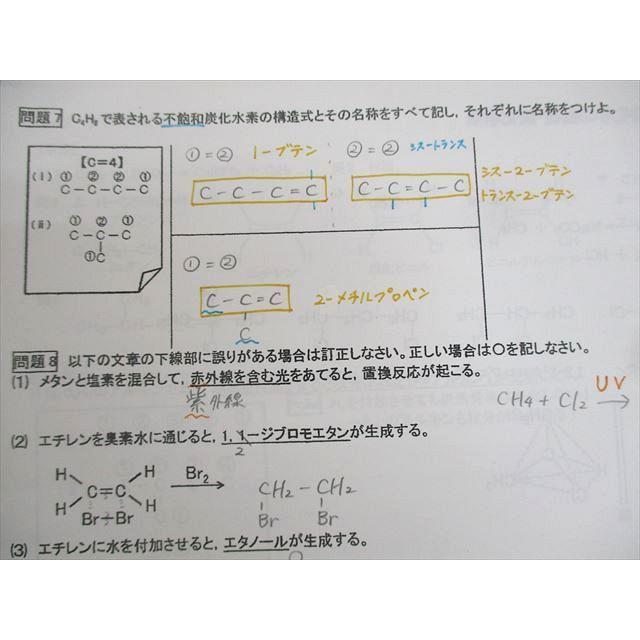 問題7 C₄H₈で表される不飽和炭化水素の構造式とその名称をすべて記し，それぞれに名称をつけよ。
【C=4】
(i) ① ② ② ①
C－C－C－C
(ii) ① ② ①
C－C－C
①C
①=② 1-ブテン
C-C-C=C
②=② シス-トランス
C-C=C-C
シス-2-ブテン
トランス-2-ブテン
①=②
C-C=C 2-メチルプロペン
C
問題8 以下の文章の下線部に誤りがある場合は訂正しなさい。正しい場合は○を記しなさい。
(1) メタンと塩素を混合して，赤外線を含む光をあてると，置換反応が起こる。
紫外線
CH4 + Cl2 → UV
(2) エチレンを臭素水に通じると，1，1-ジブロモエタンが生成する。
2
H H
C=C
H H
Br-Br
Br₂
CH2-CH2
Br Br
(3) エチレンに水を付加させると，エタノールが生成する。
○